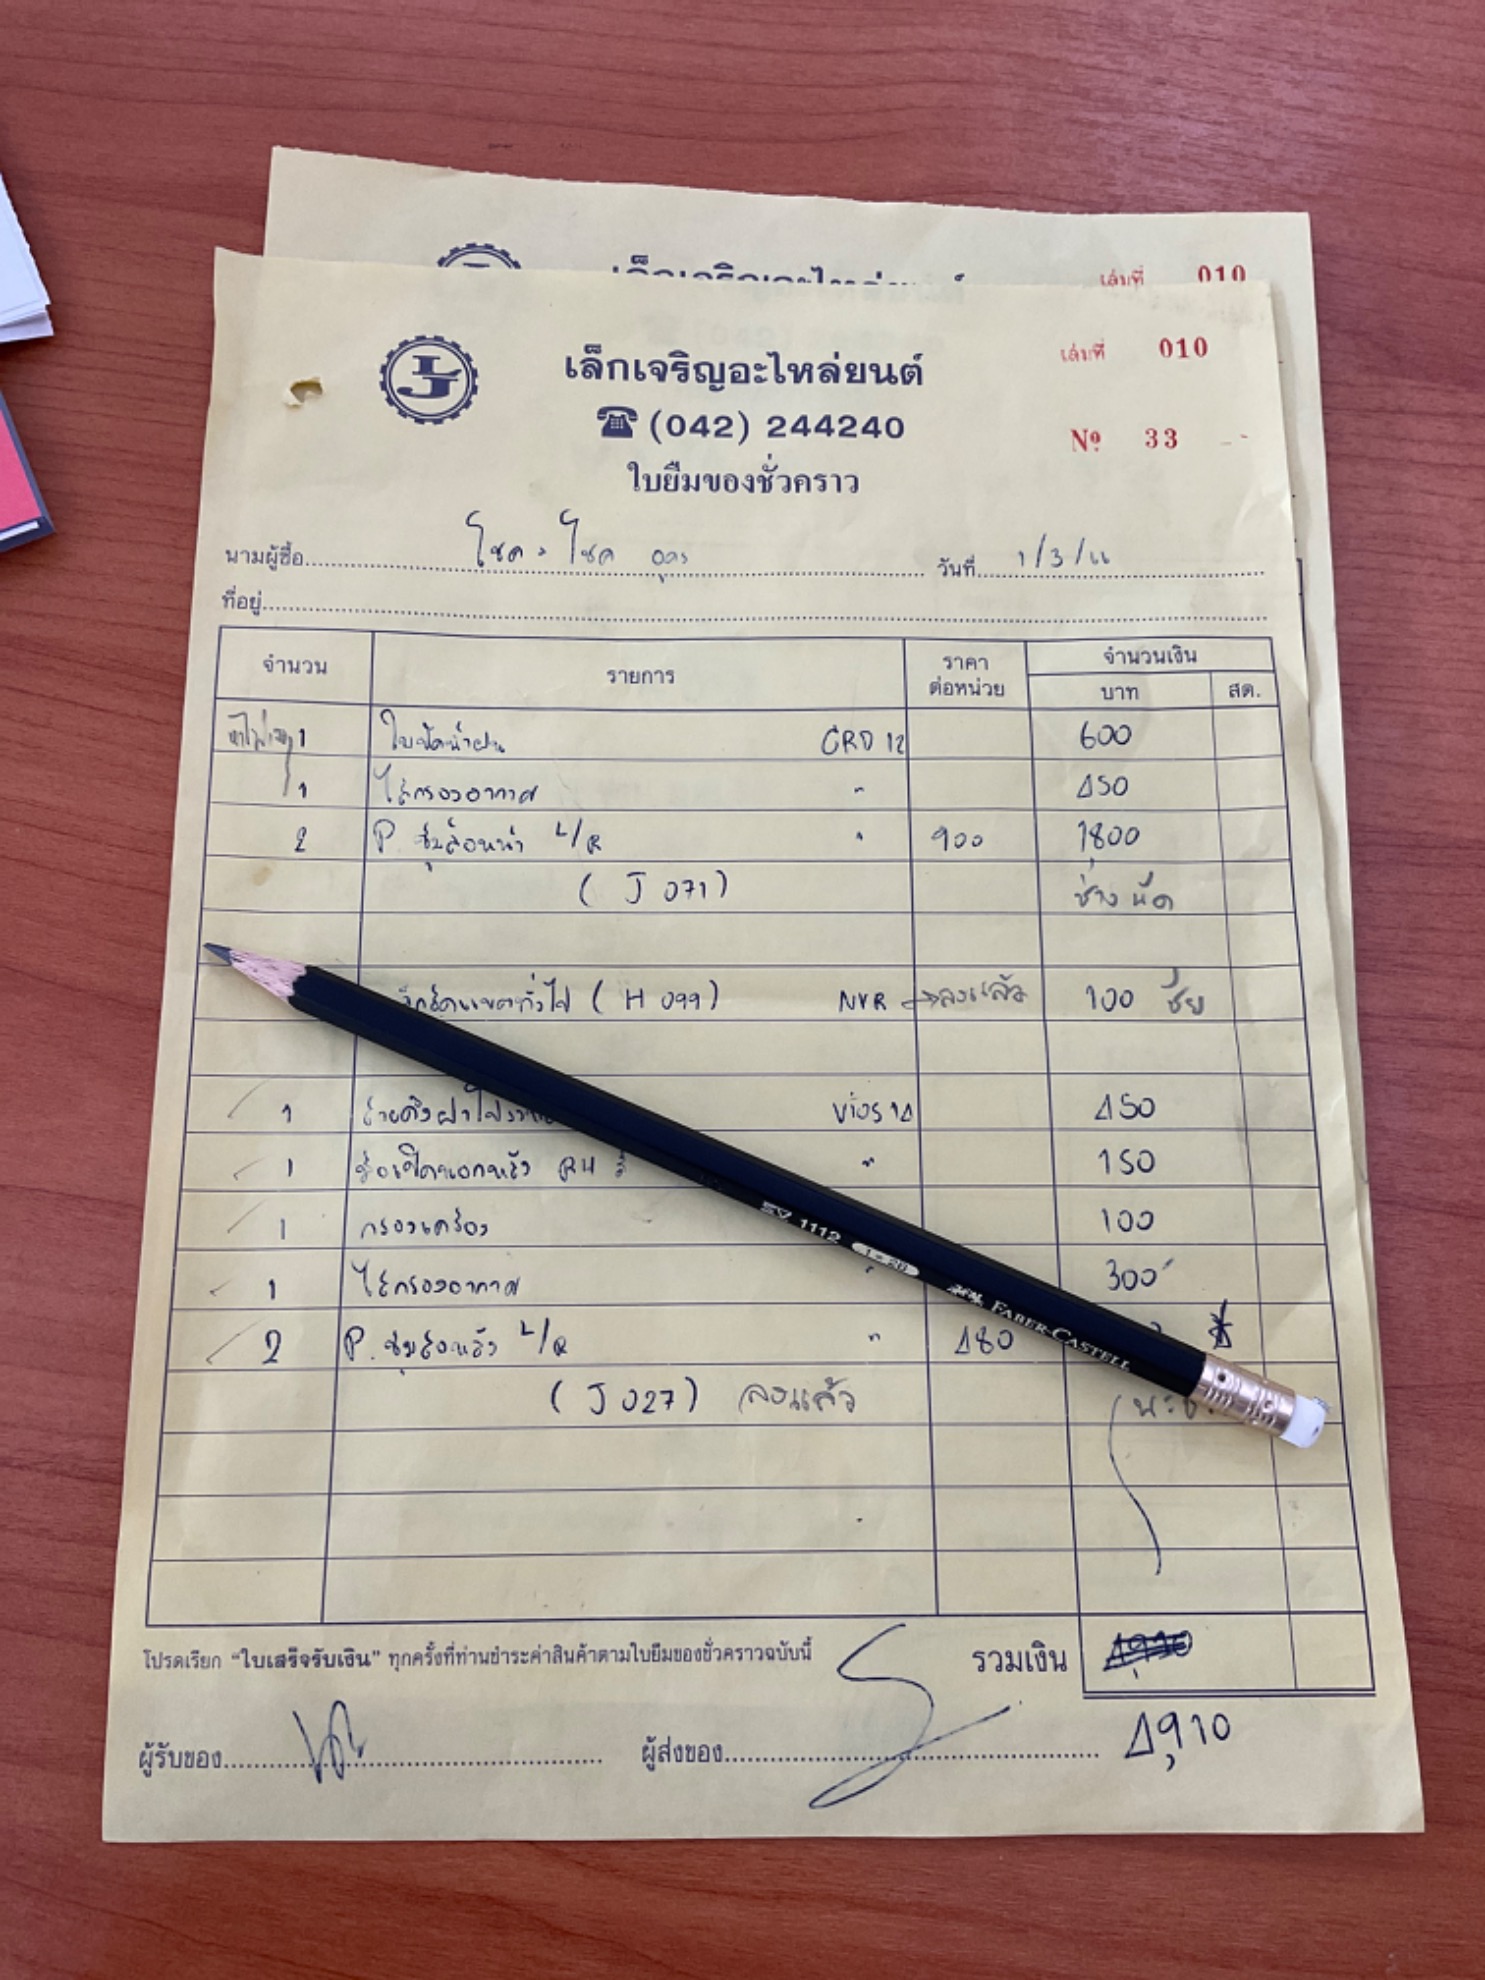 เล่มที่ 010
เล็กเจริญอะไหล่ยนต์
เล่มที่ 010
(042) 244240
Nº 33
ใบยืมของชั่วคราว
นามผู้ซื้อ โชค ๖ โชค อุดร วันที่ 1/3/66
ที่อยู่
จำนวน รายการ ราคาต่อหน่วย จำนวนเงิน
บาท สต.
1 ใบปัดน้ำฝน CRD 12 600
1 ไส้กรองอากาศ " 450
2 P. ซุ้มล้อหน้า L/R " 900 1,800
(J 071) ช่าง นัด
(H 099) NVR ลงแล้ว 100 ชัย
1 Vios 14 450
1 RH " 150
1 กรองเครื่อง 100
1 ไส้กรองอากาศ " 300
2 P. ซุ้มล้อหลัง L/R " 480
(J 027) ลงแล้ว
1112
FABER-CASTELL
โปรดเรียก "ใบเสร็จรับเงิน" ทุกครั้งที่ท่านชำระค่าสินค้าตามใบยืมของชั่วคราวฉบับนี้ รวมเงิน
ผู้รับของ ผู้ส่งของ 4,910